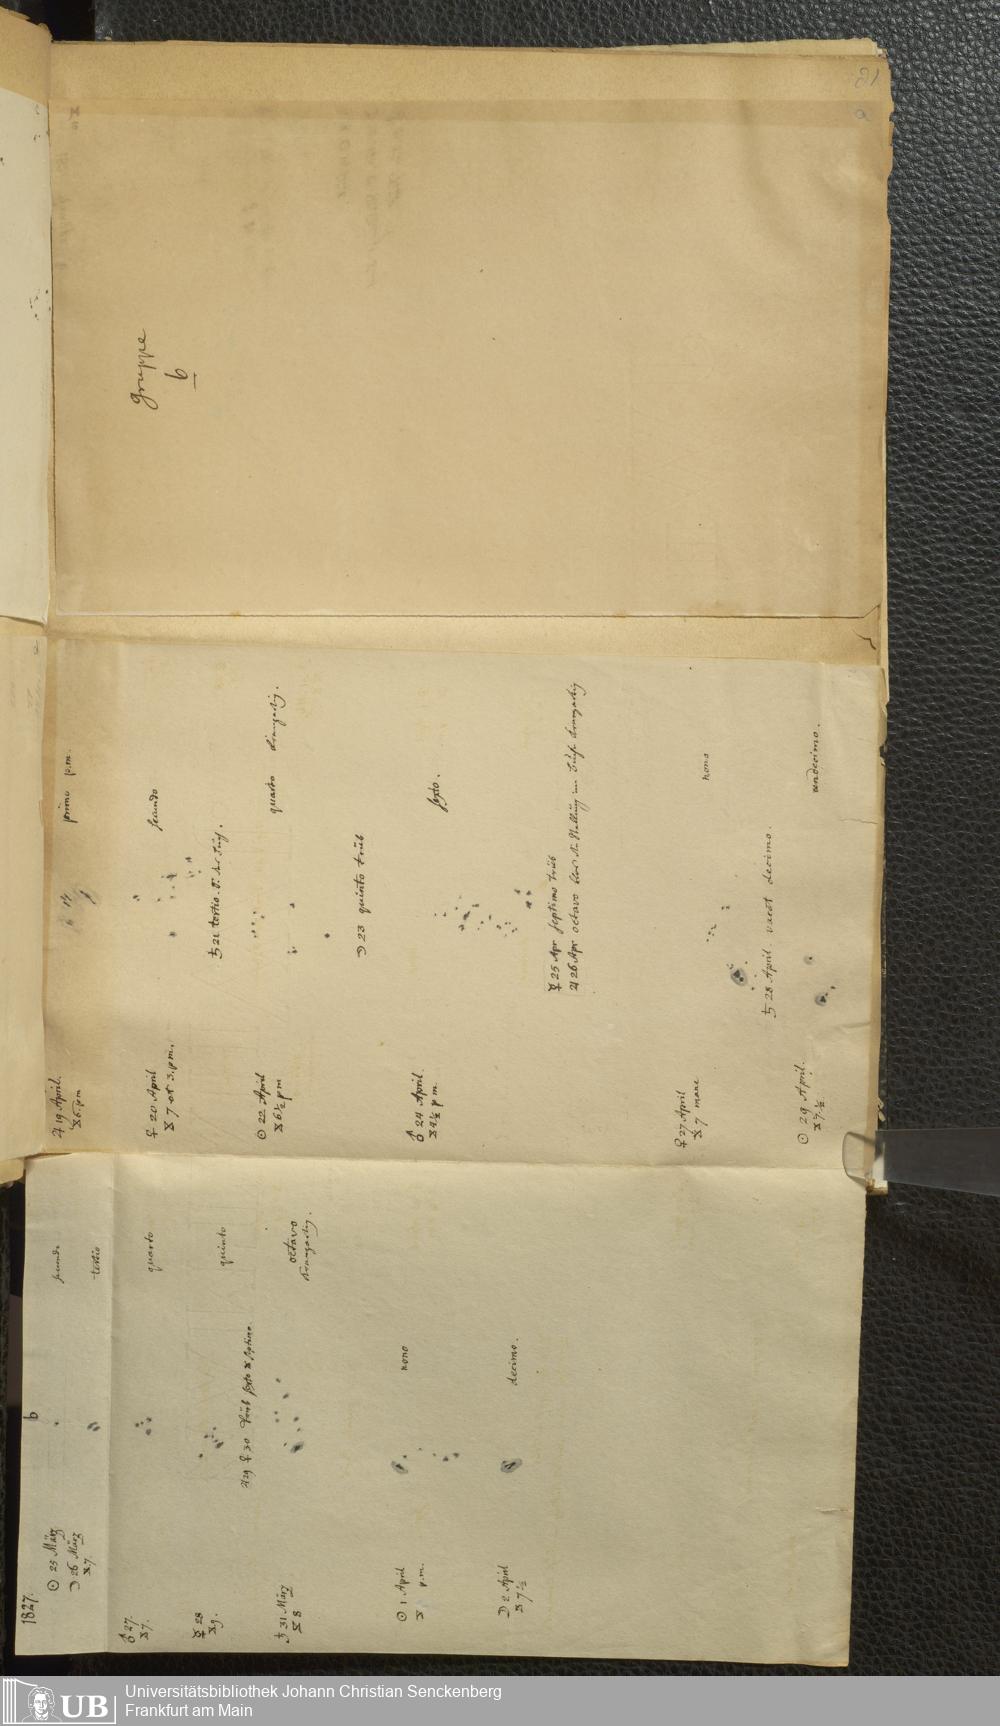 81
a
Gruppe
b
♃ 19 April.
6. p m
primo p.m.
♀ 20 April
7 et 3. p m.
secundo
♄ 21 tertio.
☉ 22 April
6 ½ p m
quarto
☽ 23 quinto trüb
♂ 24 April.
4 ½ p m.
sexto.
☿ 25 Apr septimo trüb
♃ 26 Apr octavo
♀ 27 April
7 mane
nono
♄ 28 April. vacat decimo.
☉ 29 April.
7 ½
undecimo.
1827.
b
☉ 25 März
secundo
☽ 26 März
7.
tertio
♂ 27.
7.
quarto
☿ 28
9.
quinto
♃ 29 ♀ 30 trüb sexto & septimo.
♄ 31 März
8
octavo
☉ 1 April
p.m.
nono
☽ 2 April
7 ½
decimo.
UB
Universitätsbibliothek Johann Christian Senckenberg
Frankfurt am Main